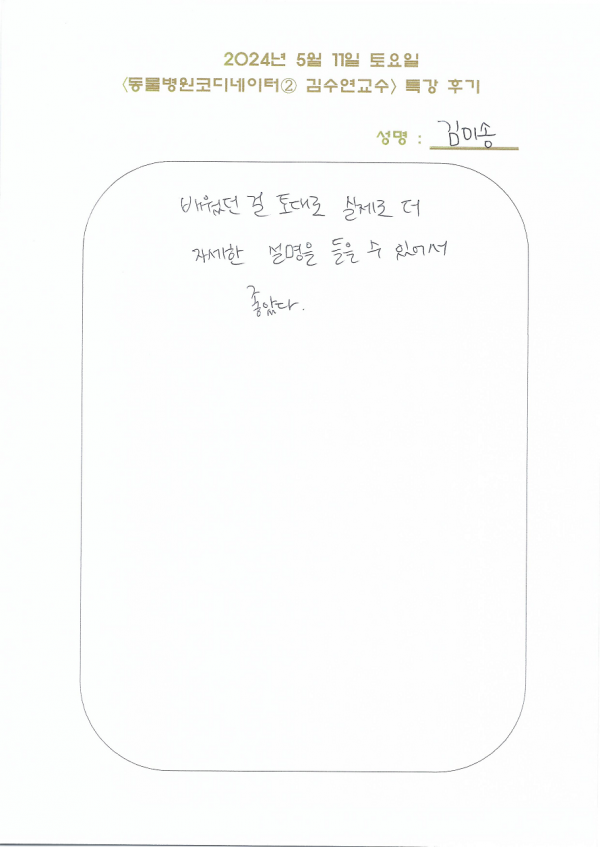 2024년 5월 11일 토요일
<동물병원코디네이터② 김수연교수> 특강 후기
성명 : 김미송
배웠던 걸 토대로 실제로 더
자세한 설명을 들을 수 있어서
좋았다.